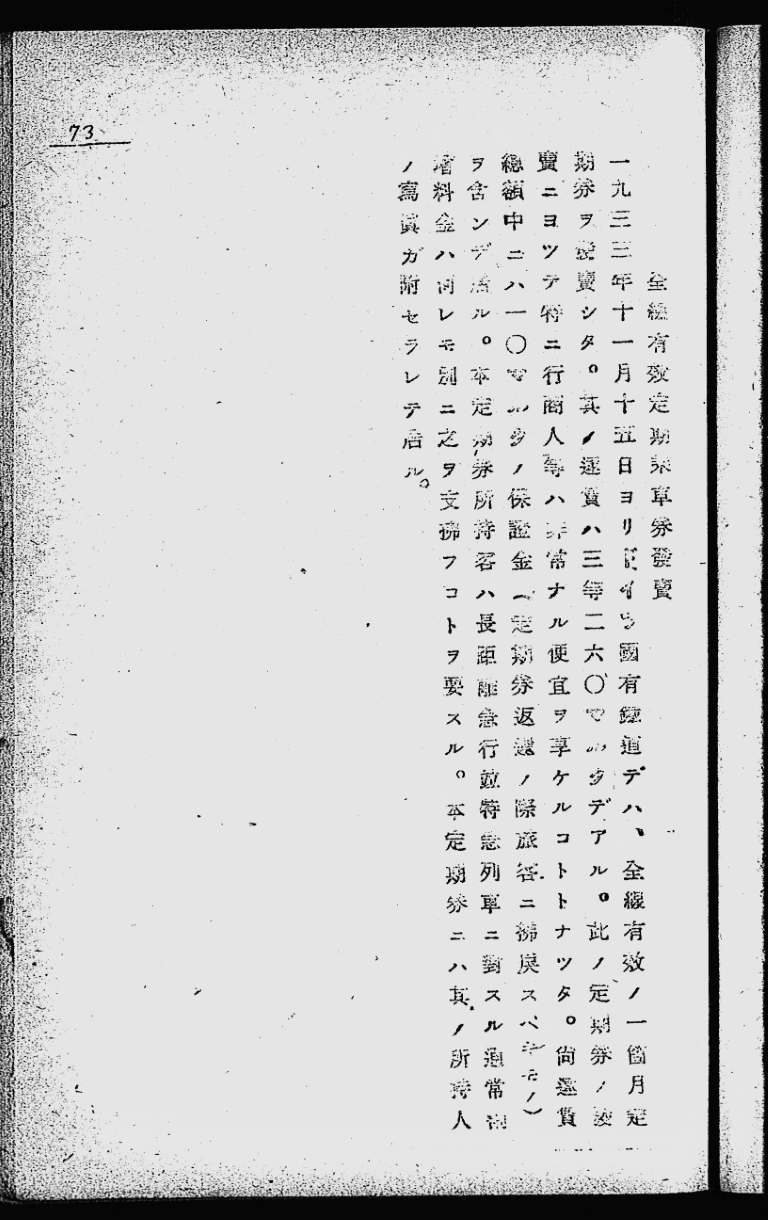 全線有效定期乘車券發賣
一九三三年十一月十五日ヨリドイツ國有鐵道デハ、全線有效ノ一箇月定
期券ヲ發賣シタ。其ノ運賃ハ三等二六〇マルクデアル。此ノ定期券ノ發
賣ニヨツテ特ニ行商人等ハ非常ナル便宜ヲ享ケルコトトナツタ。尚運賃
總額中ニハ一〇マルクノ保證金(定期券返還ノ際旅客ニ拂戾スベキモノ)
ヲ含ンデ居ル。本定期券所持客ハ長距離急行竝特急列車ニ對スル通常割
增料金ハ何レモ別ニ之ヲ支拂フコトヲ要スル。本定期券ニハ其ノ所持人
ノ寫眞ガ附セラレテ居ル。
73